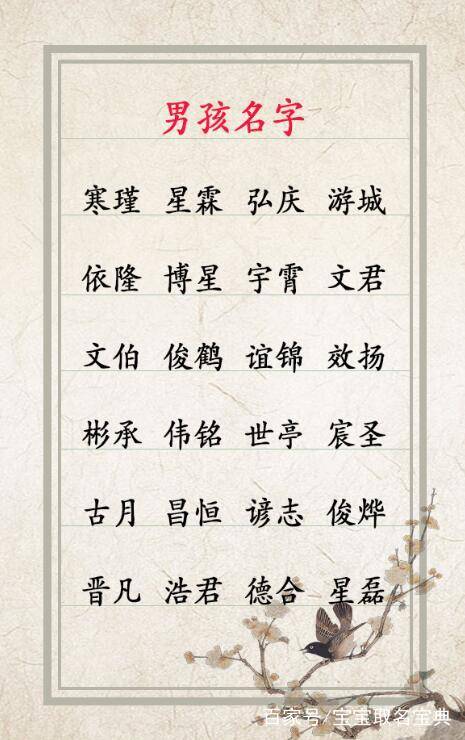 男孩名字
寒瑾 星霖 弘庆 游城
依隆 博星 宇霄 文君
文伯 俊鹤 谊锦 效扬
彬承 伟铭 世亭 宸圣
古月 昌恒 谚志 俊烨
晋凡 浩君 德合 星磊
百家号/宝宝取名宝典